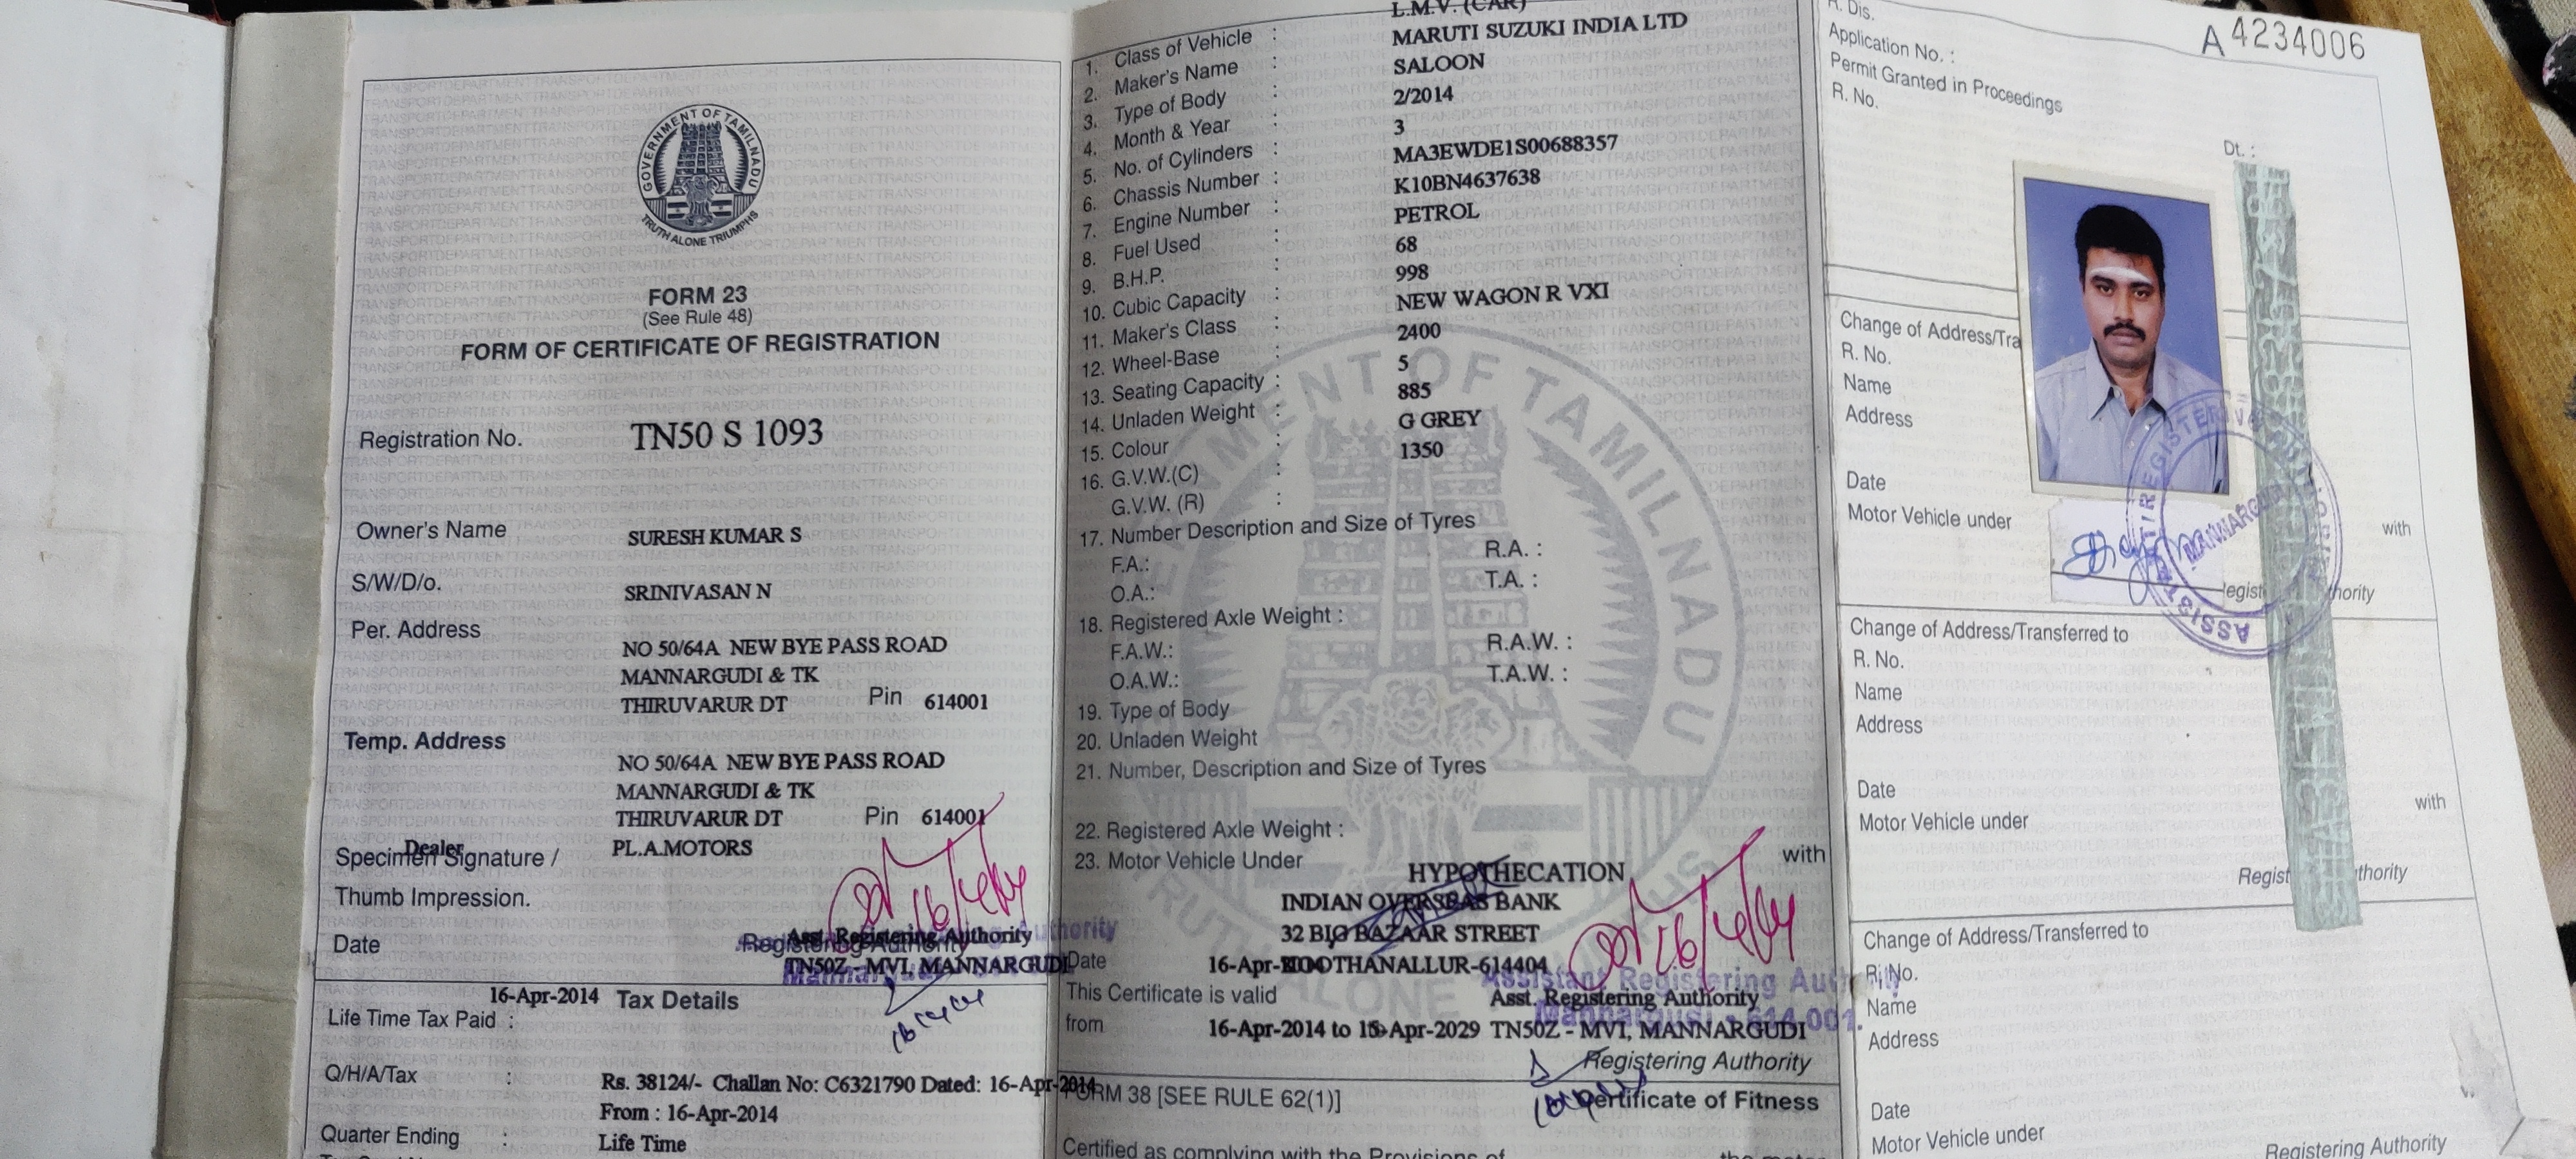 GOVERNMENT OF TAMILNADU
TRUTH ALONE TRIUMPHS
FORM 23
(See Rule 48)
FORM OF CERTIFICATE OF REGISTRATION
Registration No. TN50 S 1093
Owner's Name SURESH KUMAR S
S/W/D/o. SRINIVASAN N
Per. Address
NO 50/64A NEW BYE PASS ROAD
MANNARGUDI & TK
THIRUVARUR DT Pin 614001
Temp. Address
NO 50/64A NEW BYE PASS ROAD
MANNARGUDI & TK
THIRUVARUR DT Pin 614001
Dealer PL.A.MOTORS
Specimen Signature /
Thumb Impression.
Date Registering Authority
Asst. Registering Authority
TN50Z - MVI, MANNARGUDI
16-Apr-2014 Tax Details
Life Time Tax Paid :
Q/H/A/Tax : Rs. 38124/- Challan No: C6321790 Dated: 16-Apr-2014
From : 16-Apr-2014
Quarter Ending : Life Time
L.M.V. (CAR)
1. Class of Vehicle :
MARUTI SUZUKI INDIA LTD
2. Maker's Name :
SALOON
3. Type of Body :
2/2014
4. Month & Year :
3
5. No. of Cylinders :
MA3EWDE1S00688357
6. Chassis Number :
K10BN4637638
7. Engine Number :
PETROL
8. Fuel Used :
68
9. B.H.P. :
998
10. Cubic Capacity :
NEW WAGON R VXI
11. Maker's Class :
2400
12. Wheel-Base :
5
13. Seating Capacity :
885
14. Unladen Weight :
G GREY
15. Colour :
1350
16. G.V.W.(C) :
G.V.W. (R) :
17. Number Description and Size of Tyres
F.A.: R.A. :
O.A.: T.A. :
18. Registered Axle Weight :
F.A.W.: R.A.W. :
O.A.W.: T.A.W. :
19. Type of Body
20. Unladen Weight
21. Number, Description and Size of Tyres
22. Registered Axle Weight :
23. Motor Vehicle Under with
HYPOTHECATION
INDIAN OVERSEAS BANK
32 BIG BAZAAR STREET
Date 16-Apr-2014 KOOTHANALLUR-614404
Assistant Registering Authority
This Certificate is valid Asst. Registering Authority
Mannargudi - 614 001.
from 16-Apr-2014 to 15-Apr-2029 TN50Z - MVI, MANNARGUDI
Registering Authority
FORM 38 [SEE RULE 62(1)] Certificate of Fitness
Certified as complying with the Provisions of
R. Dis.
A 4234006
Application No. :
Permit Granted in Proceedings
R. No. Dt. :
Change of Address/Tra
R. No.
Name
Address
Date
Motor Vehicle under with
MANNARGUDI
Change of Address/Transferred to
R. No.
Name
Address
Date
Motor Vehicle under with
Change of Address/Transferred to
R. No.
Name
Address
Date
Motor Vehicle under
Registering Authority